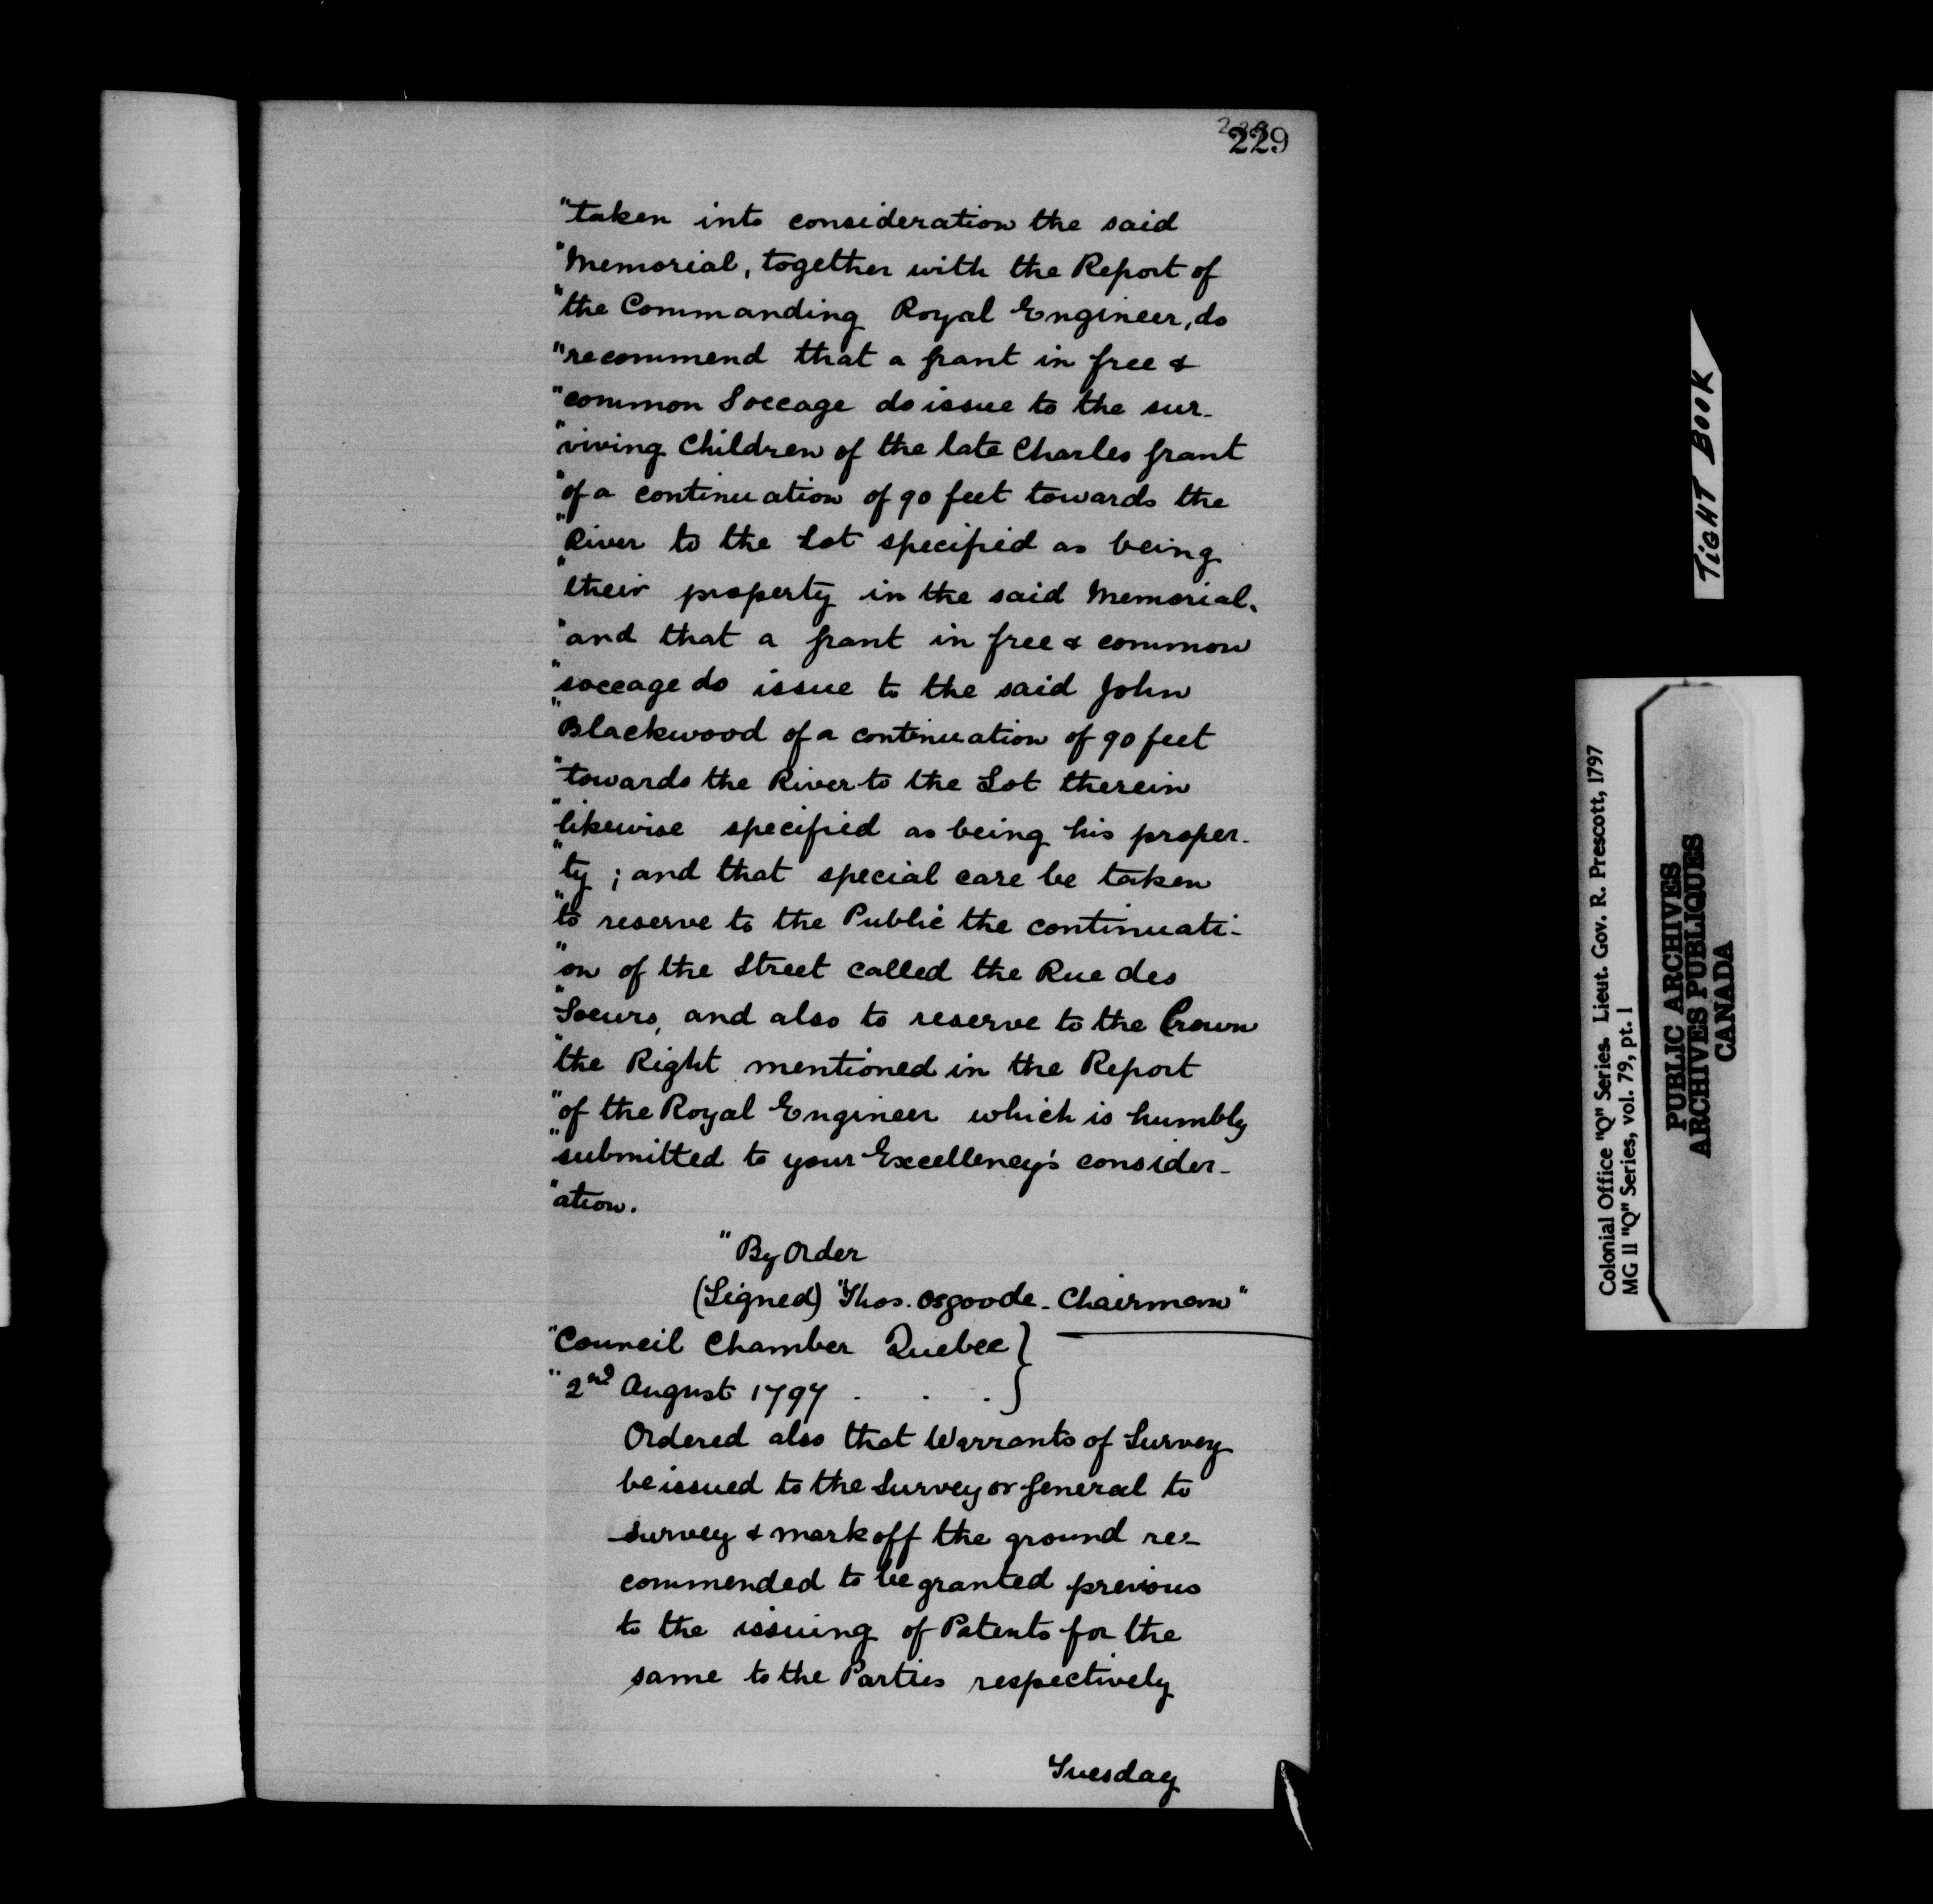 229
"taken into consideration the said
"Memorial, together with the Report of
"the Commanding Royal Engineer, do
"recommend that a grant in free &
"common Soccage do issue to the sur-
"viving Children of the late Charles Grant
"of a continuation of 90 feet towards the
"River to the Lot specified as being
"their property in the said Memorial,
"and that a grant in free & common
"soccage do issue to the said John
"Blackwood of a continuation of 90 feet
"towards the River to the Lot therein
"likewise specified as being his proper-
"ty ; and that special care be taken
"to reserve to the Public the continuati-
"on of the Street called the Rue des
"Soeurs, and also to reserve to the Crown
"the Right mentioned in the Report
"of the Royal Engineer which is humbly
"submitted to your Excellency's consider-
"ation.
"By Order
(Signed) "Thos. Osgoode - Chairman"
"Council Chamber Quebec }
"2nd August 1797 . . . }
Ordered also that Warrants of Survey
be issued to the Surveyor General to
survey & mark off the ground re-
commended to be granted previous
to the issuing of Patents for the
same to the Parties respectively
Tuesday
TIGHT BOOK
Colonial Office "Q" Series. Lieut. Gov. R. Prescott, 1797
MG 11 "Q" Series, vol. 79, pt. 1
PUBLIC ARCHIVES
ARCHIVES PUBLIQUES
CANADA